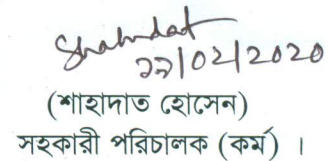 Shahadat
২৯/02/2020
(শাহাদাত হোসেন)
সহকারী পরিচালক (কর্ম) ।